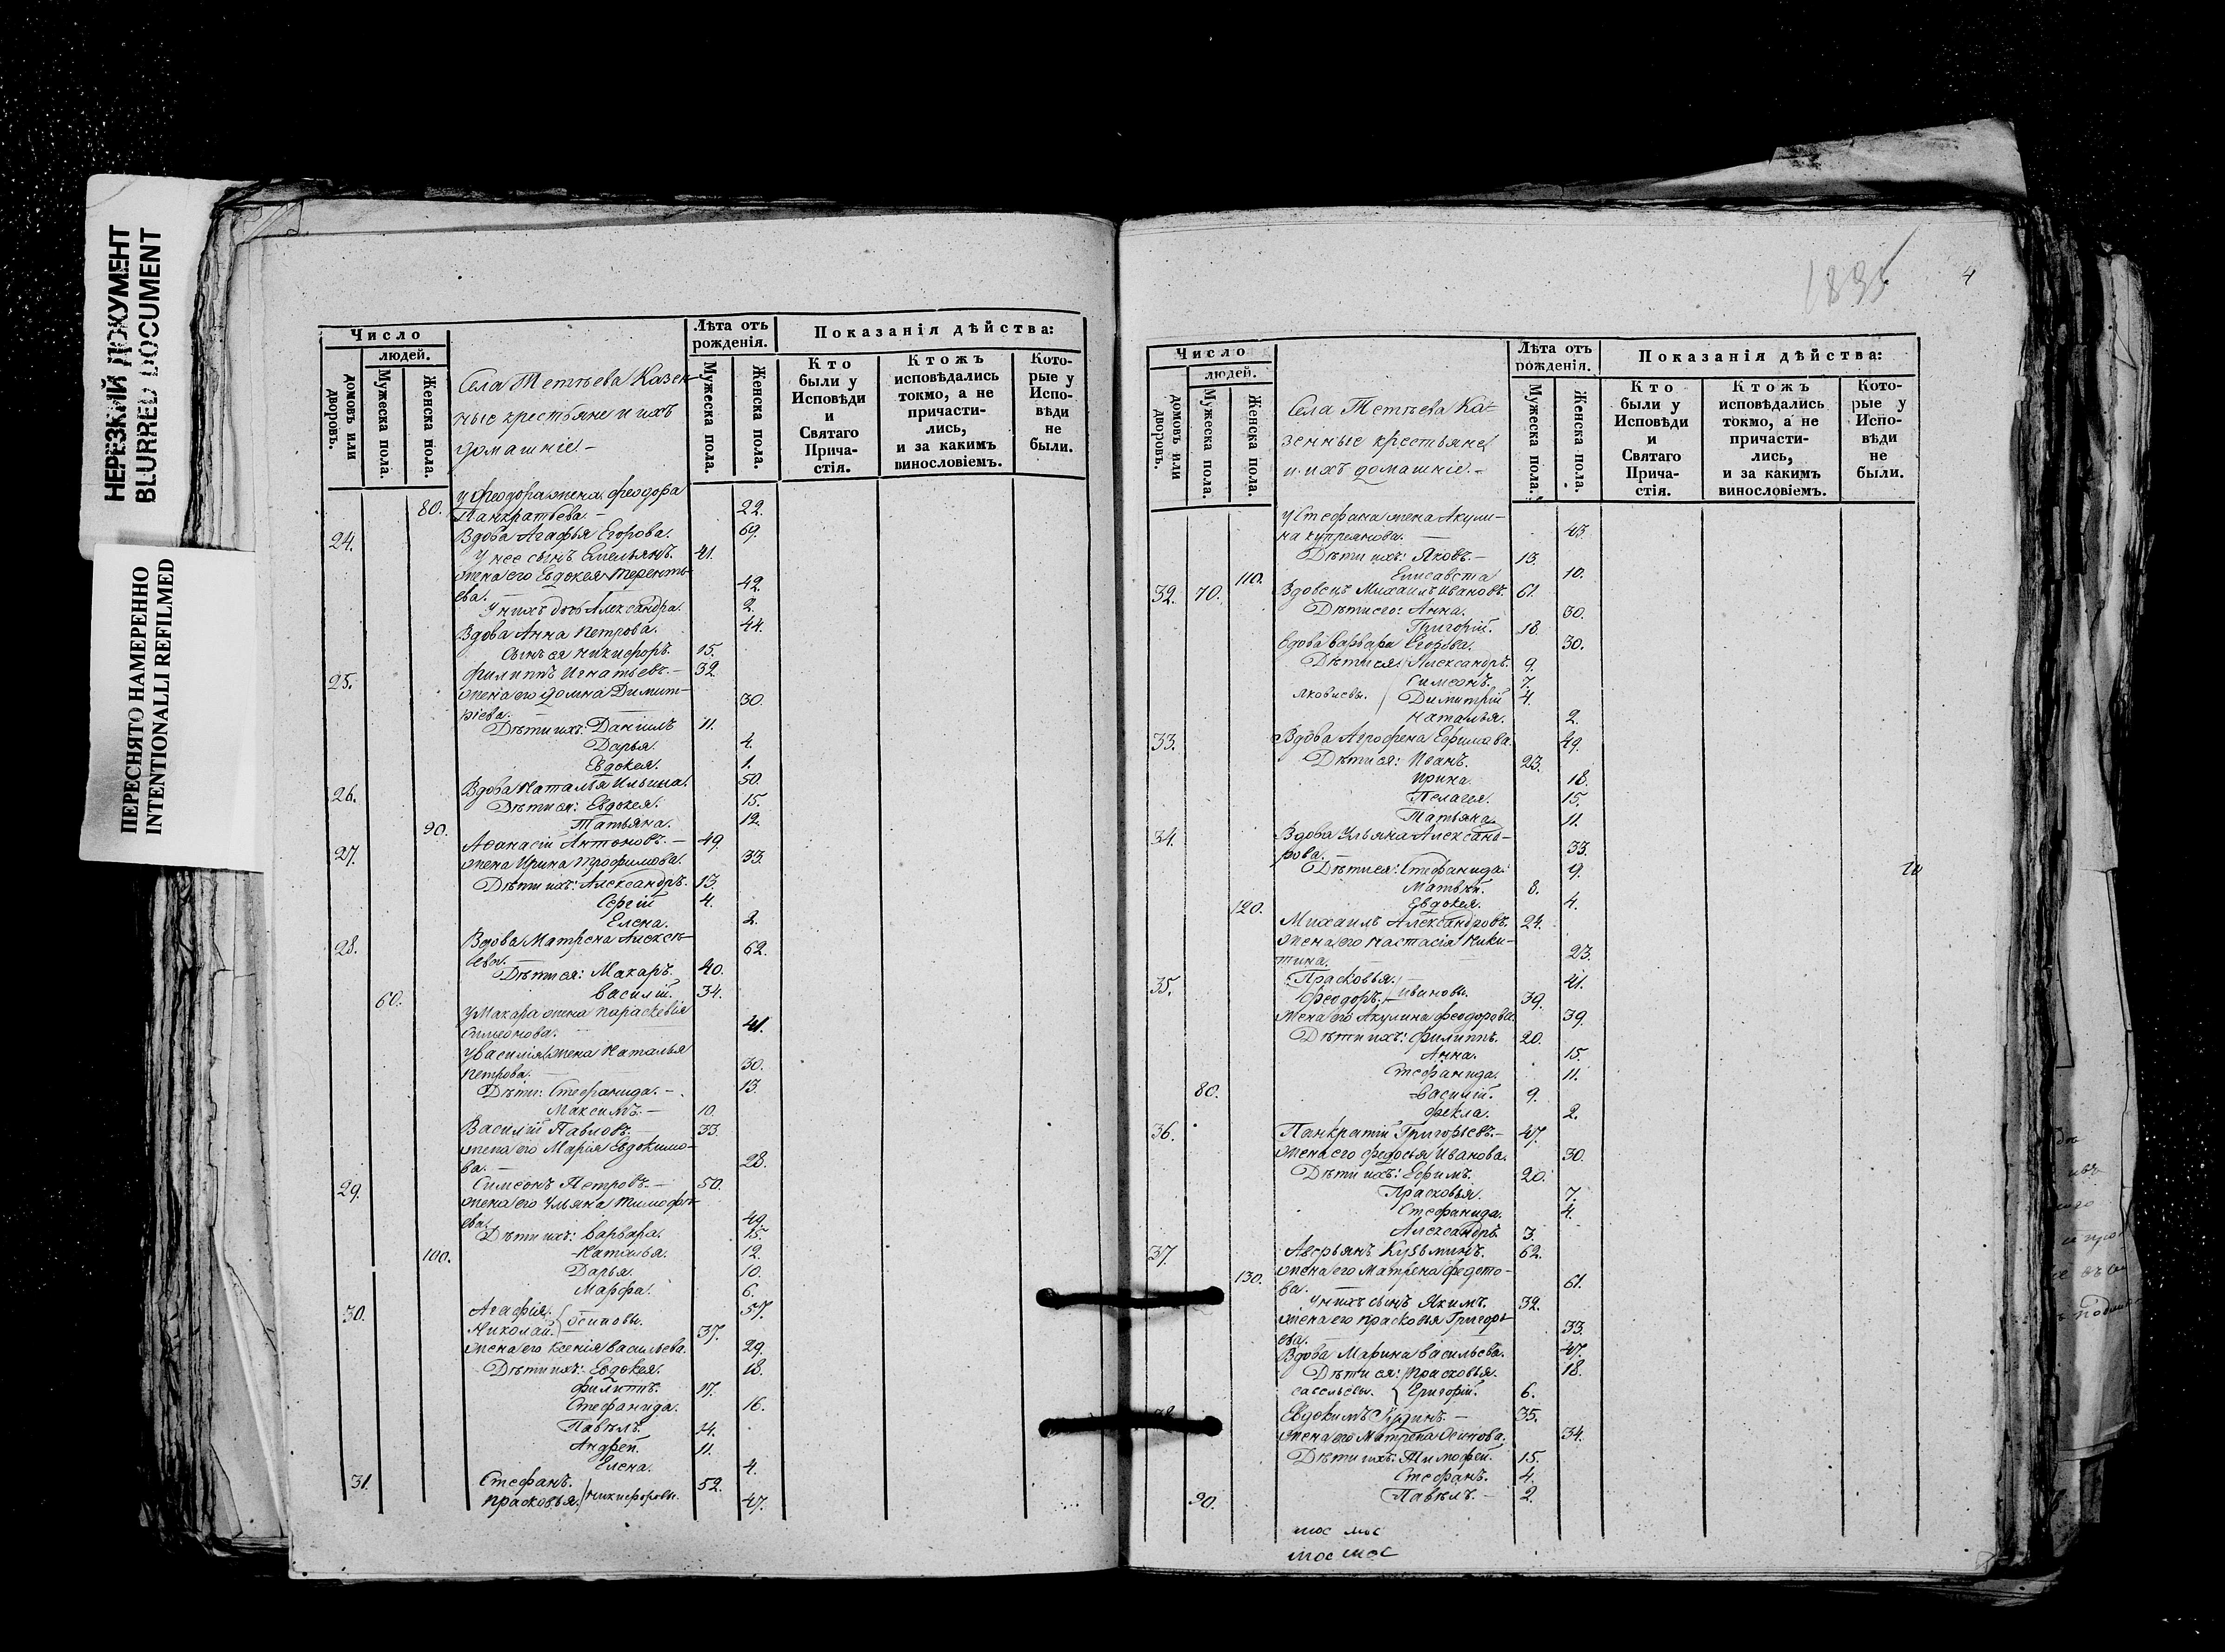 НЕРЕЗКИЙ ДОКУМЕНТ
BLURRED DOCUMENT
ПЕРЕСНЯТО НАМЕРЕННО
INTENTIONALLI REFILMED
Число
домовъ или дворовъ.
людей.
Мужеска пола.
Женска пола.
Села Тетѣева Казен-
ные крестьяне и ихъ
домашніе. -
Лѣта отъ рожденія.
Мужеска пола.
Женска пола.
Показанія дѣйства:
Кто были у Исповѣди и Святаго Прича-стія.
Ктожъ исповѣдались токмо, а не причасти-лись, и за какимъ винословіемъ.
Кото-рые у Испо-вѣди не были.
80. У Феодора жена Феодора
Панкратьева. - 22.
24. Вдова Агафья Егорова. 69.
У нее сынъ Емельянъ. 41.
жена его Евдокея Теренть-
ева. 42.
У нихъ дочь Александра. 2.
Вдова Анна Петрова. 44.
Сынъ ея Никифоръ. 15.
25. Филиппъ Игнатьевъ. - 32
жена его Домна Димит-
ріева. 30.
Дѣти ихъ: Даніилъ 11.
Дарья. 4.
Евдокея. 1.
26. Вдова Наталья Ильина. 50.
Дѣти ея: Евдокея. 15.
90. Татьяна. 12.
27. Аѳанасій Антоновъ. - 49.
жена Ирина Трофимова. 33.
Дѣти ихъ: Александръ. 13.
Сергій 4.
Елена. 2.
28. Вдова Матрена Алексѣ-
ева. 62.
Дѣти ея: Макаръ. 40.
60. Василій. 34.
У Макара жена Параскевія
Симеонова. 41.
У Василія жена Наталья
Петрова. 30.
Дѣти: Стефанида. - 13.
Максимъ. - 10.
Василій Павловъ. - 33.
жена его Марія Евдокимо-
ва. - 28.
29. Симеонъ Петровъ. - 50.
жена его Ульяна Тимофѣ-
ева. 49.
Дѣти ихъ: Варвара. 15.
100. Наталья. 12.
Дарья. 10.
Марфа. 6.
30. Агафія. Осиповы. 57.
Николай. 37.
жена его Ксенія Васильева. 29.
Дѣти ихъ: Евдокея. 18.
Филиппъ. 17.
Стефанида. 16.
Павелъ. 14.
Андрей. 11.
Елена. 4.
31. Стефанъ. 52.
Прасковья. Никифоровы. 47.
1835
4
Число
домовъ или дворовъ.
людей.
Мужеска пола.
Женска пола.
Села Тетѣева Ка=
зенные крестьяне
и ихъ домашніе. -
Лѣта отъ рожденія.
Мужеска пола.
Женска пола.
Показанія дѣйства:
Кто были у Исповѣди и Святаго Прича-стія.
Ктожъ исповѣдались токмо, а не причасти-лись, и за какимъ винословіемъ.
Кото-рые у Испо-вѣди не были.
У Стефана жена Акули-
на Купреянова. 43.
Дѣти ихъ: Яковъ. - 13.
110. Елисавета 10.
32. 70. Вдовецъ Михаилъ Ивановъ. 61.
Дѣти его: Анна. 30.
Григорій. 18.
Вдова Варвара Егорова. 30.
Дѣти ея: Александръ. 9.
Симеонъ. 7.
Яковлевы. Димитрій 4.
Наталья. 2.
33. Вдова Агрофена Ефимова. 49.
Дѣти ея: Иванъ. 23.
Ирина. 18.
Пелагея. 15.
Татьяна. 11.
34. Вдова Ульяна Александ-
рова. 33.
Дѣти ея: Стефанида. 9.
Матвѣй. 8.
120. Евдокея. 4.
Михаилъ Александровъ. 24.
жена его Настасія Ники-
тина. 23.
35. Прасковья. 41.
Феодоръ. Ивановы. 39.
жена его Акулина Феодорова. 39.
Дѣти ихъ: Филиппъ. 20.
Анна. 15.
Стефанида. 11.
80. Василій. 9.
Фекла. 2.
36. Панкратій Григорьевъ. - 47.
жена его Федосья Иванова. 30.
Дѣти ихъ: Ефимъ. 20.
Прасковья. 7.
Стефанида. 4.
Александръ. 3.
37. Аверьянъ Кузьминъ. 62.
130. жена его Матрена Федото-
ва. 61.
У нихъ сынъ Якимъ. 32.
жена его Прасковья Григорь-
ева. 33.
Вдова Марина Васильева. 47.
Дѣти ея: Прасковья. 18.
Савельевы. Григорій. 6.
38. Евдокимъ 35.
жена его Матрена Осипова. 34.
Дѣти ихъ: Тимофей. 15.
Стефанъ. 4.
90. Павелъ. - 2.